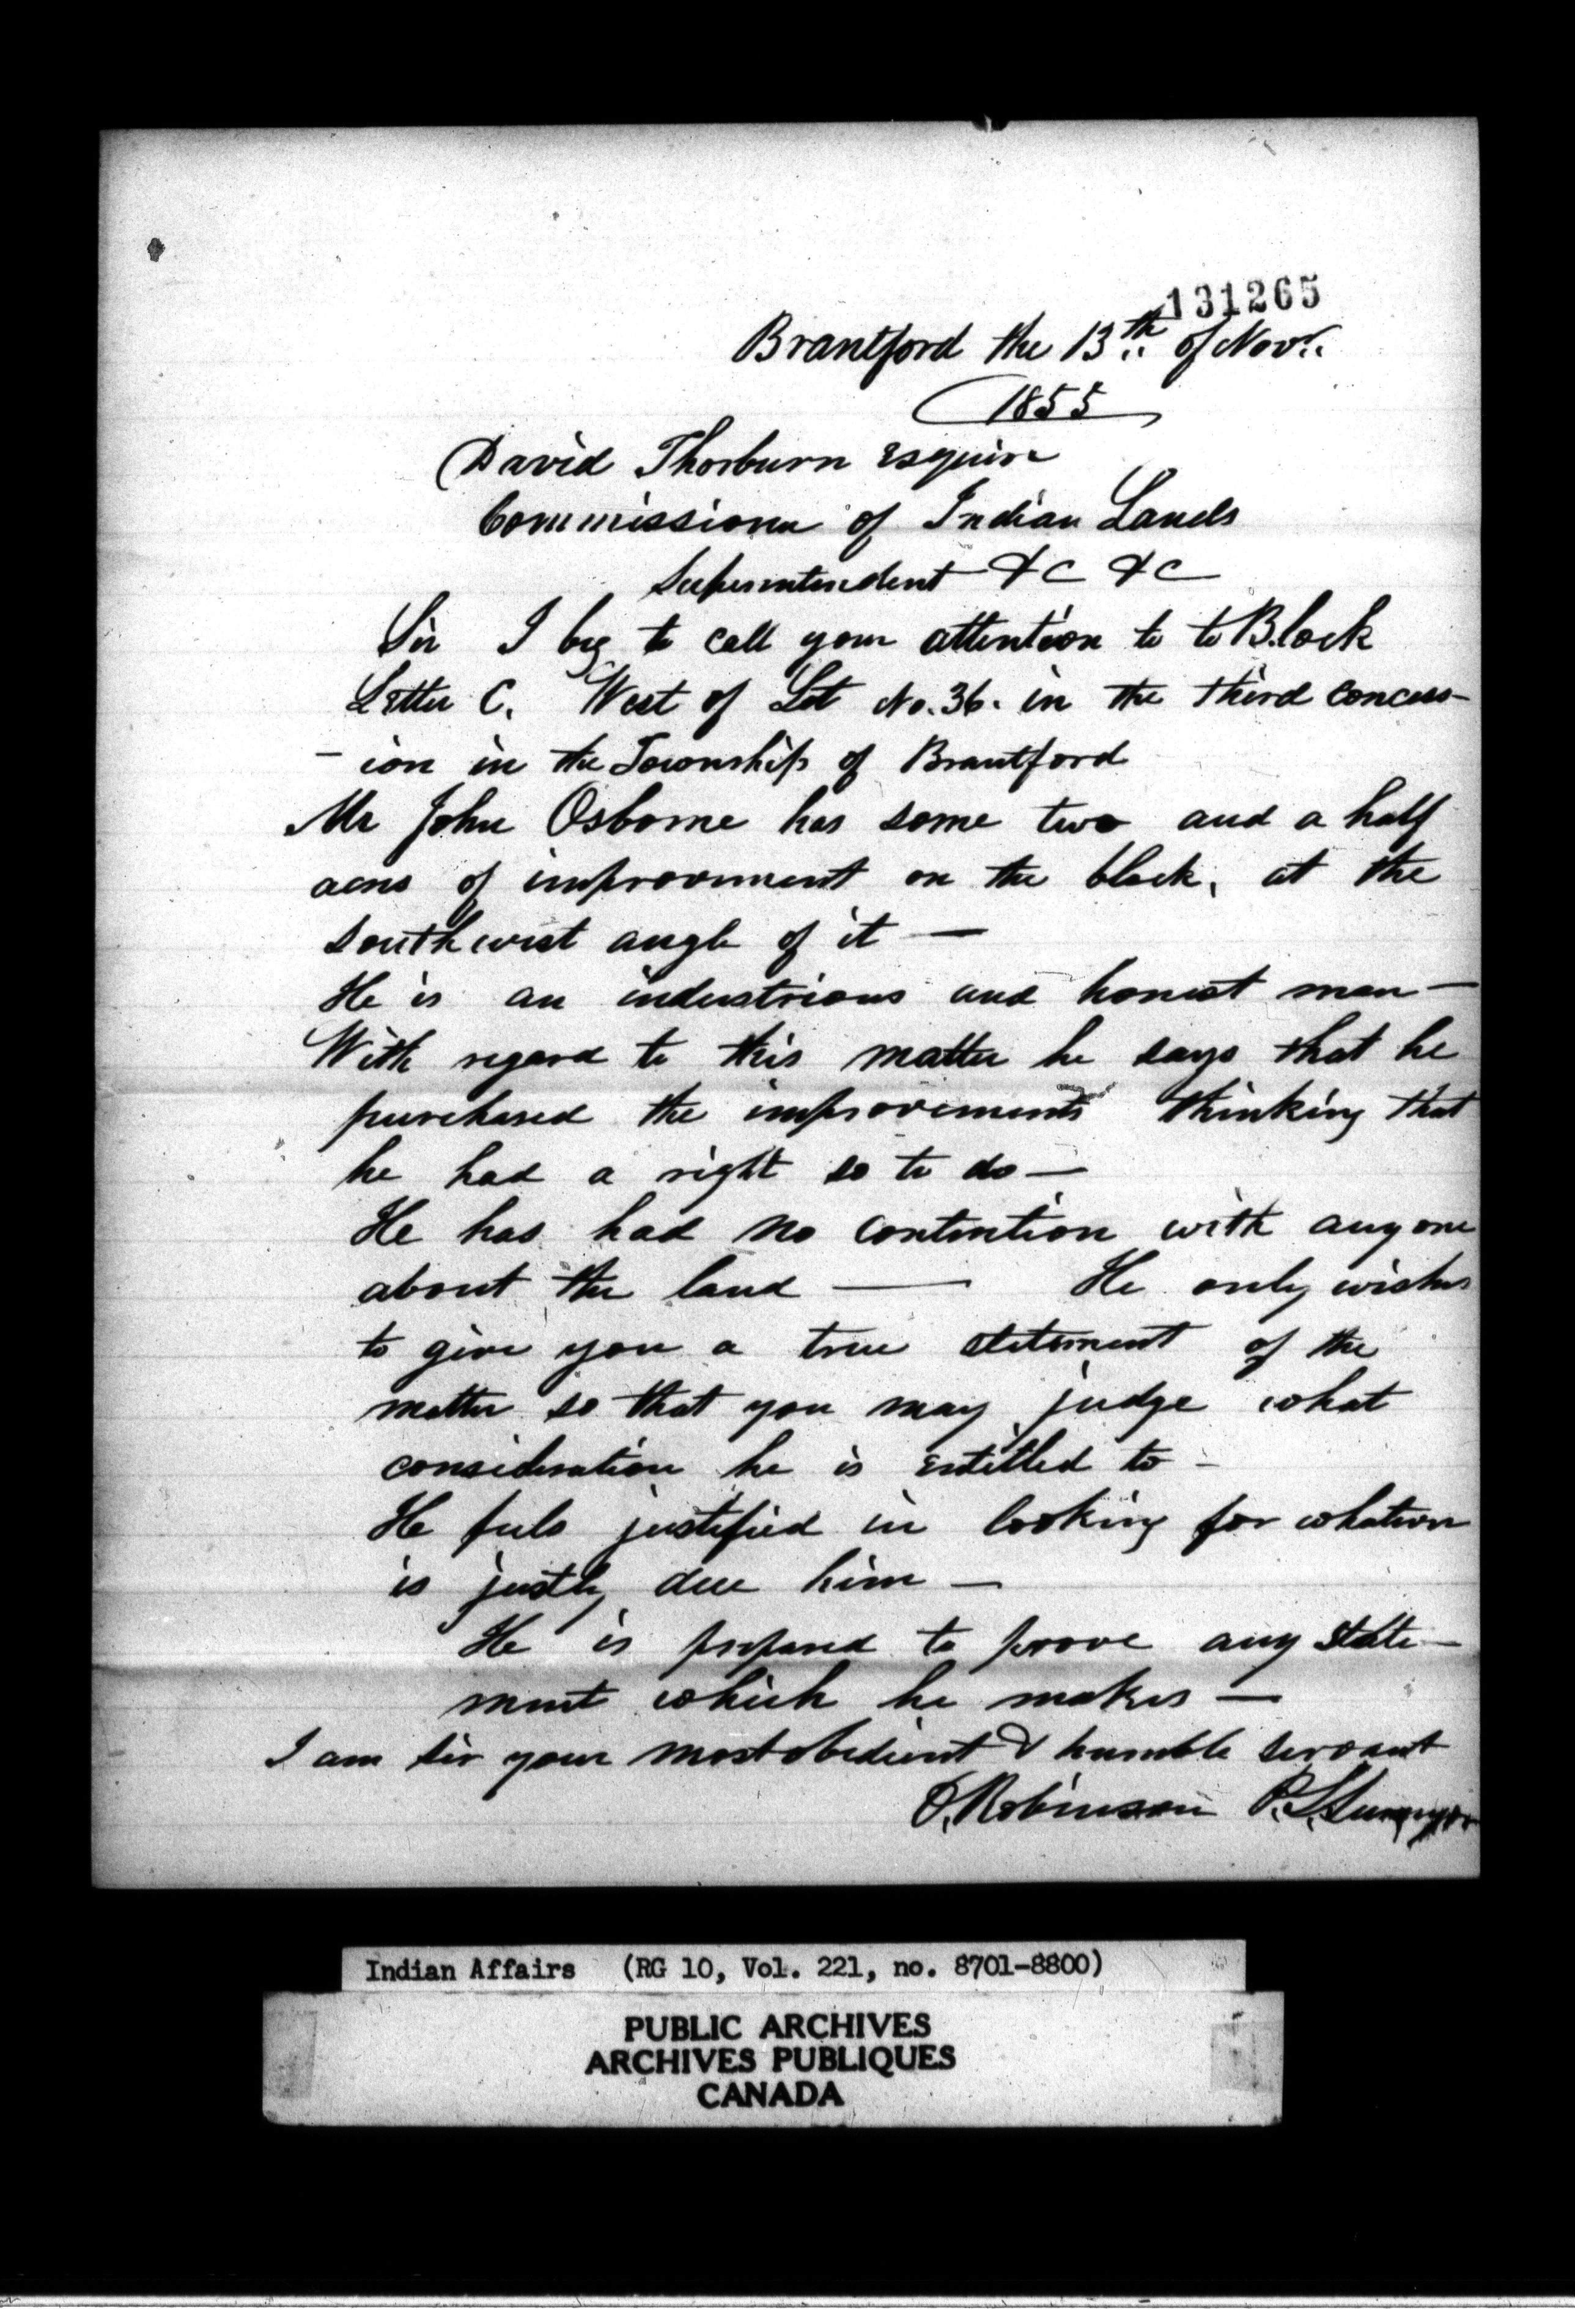 131265
Brantford the 13th of Novr
1855
David Thorburn Esquire
Commissioner of Indian Lands
Superintendent &C &C
Sir I beg to call your attention to to Block
Letter C. West of Lot No. 36. in the third concess-
-ion in the Township of Brantford
Mr John Osborne has some two and a half
acres of improvement on the block, at the
southwest angle of it —
He is an industrious and honest man —
With regard to this matter he says that he
purchased the improvements thinking that
he had a right so to do —
He has had no contention with anyone
about the land — He only wishes
to give you a true statement of the
matter so that you may judge what
consideration he is entitled to -
He feels justified in looking for whatever
is justly due him —
He is prepared to prove any state-
ment which he makes —
I am sir your most obedient & humble servant
O. Robinson P. L. Surveyor
Indian Affairs (RG 10, Vol. 221, no. 8701-8800)
PUBLIC ARCHIVES
ARCHIVES PUBLIQUES
CANADA